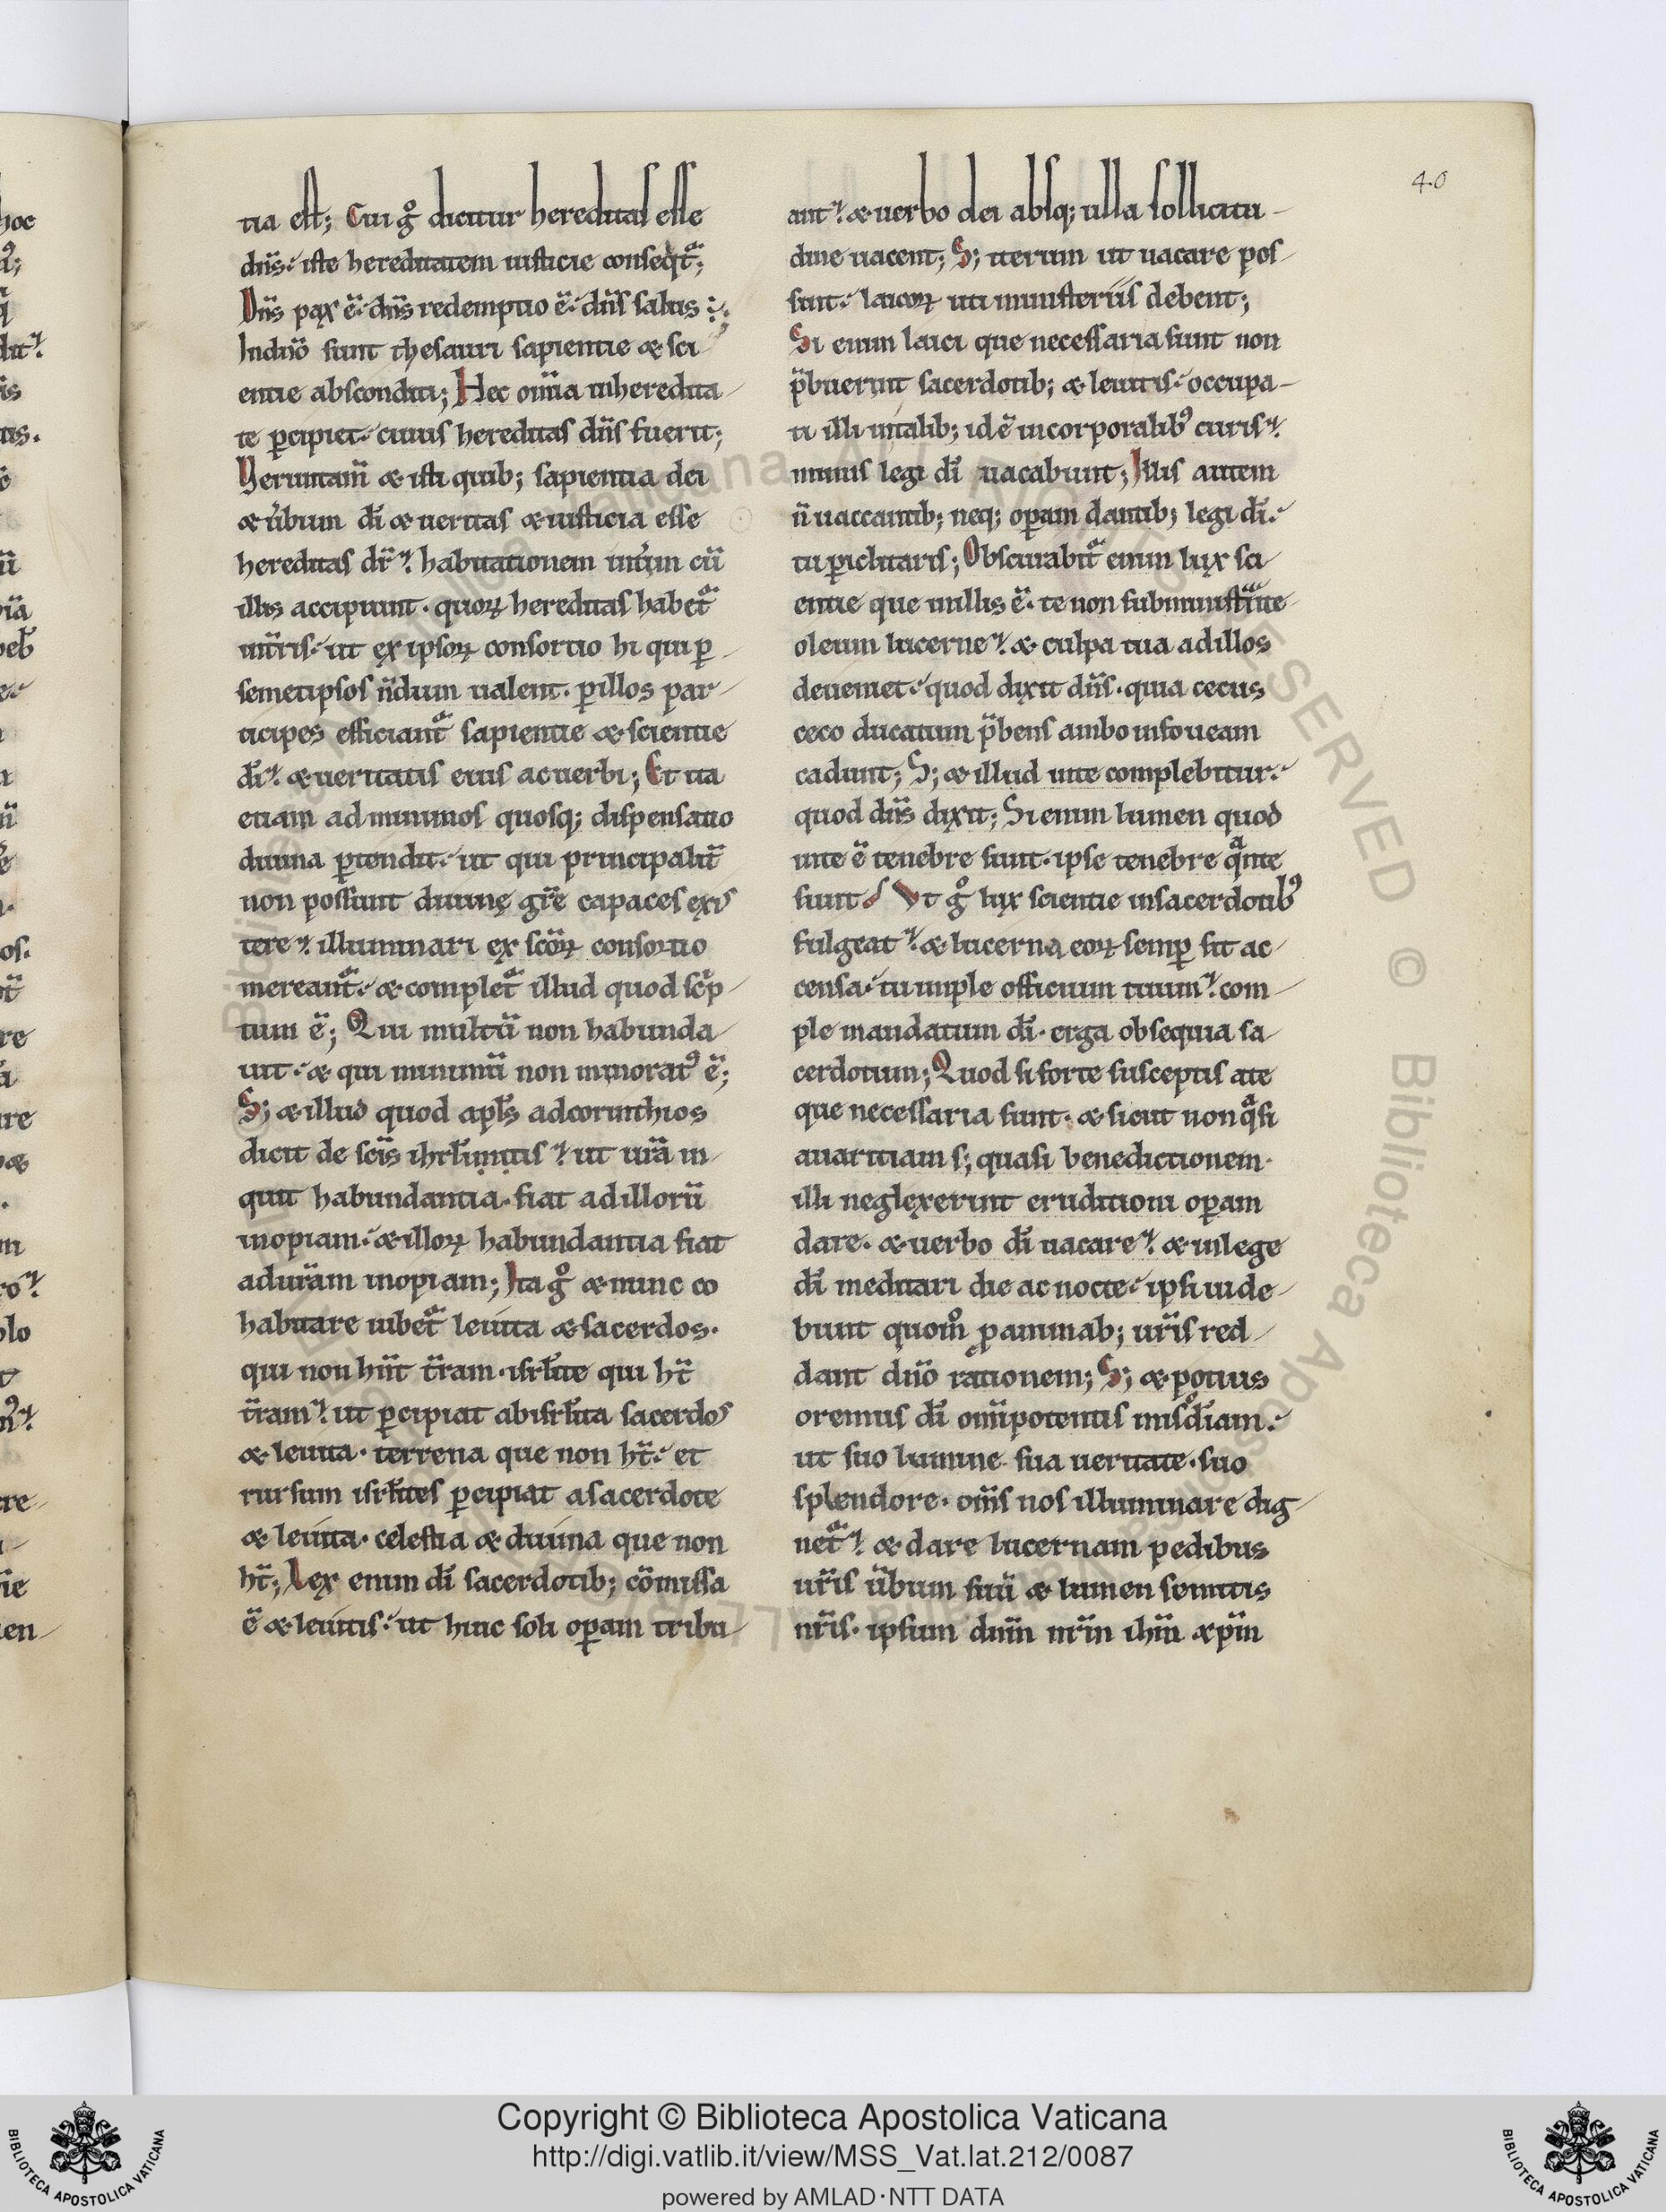 40
tia est; Cui gͦ dicitur hereditas esse
dñs· iste hereditatem iusticie conseqt̃;
Dñs pax ẽ· dñs redemptio ẽ· dñs salus ;
Induo sunt thesauri sapientie & sci
entie absconditi; Hec om̃ia inheredita
te p̱cipiet· cuius hereditas dñs fuerit;
Veruntam̃ & isti quib; sapientia dei
& ũbum dĩ & ueritas & iusticia esse
hereditas dr̃· habitationem int̃im cũ
illis accipiunt· quoꝝ hereditas habet̃
int̃ris· ut ex ipsoꝝ consortio hi qui p̱
semetipsos ñdum ualent· p̱illos par
ticipes efficiant̃ sapientie & scientie
dĩ· & ueritatis eius ac uerbi; Et ita
etiam ad minimos quosq; dispensatio
diuina p̱tendit· ut qui principalit̃
non possunt diuinę gr̃e capaces exis
tere· illuminari ex scõꝝ consortio
mereant̃· & complet̃ illud quod sc̃p
tum ẽ; Qui multũ non habunda
uit· & qui minimũ non minorat᾽ ẽ;
S; & illud quod apl̃s adcorinthios
dicit de scĩs ihrl̃imitis· ut ur̃a in
quit habundantia· fiat ad illorũ
inopiam· & illoꝝ habundantia fiat
adur̃am inopiam; Ita gͦ & nunc co
habitare iubet̃ leuita & sacerdos·
qui non hñt t̃ram· isrl̃ite qui ht̃
t̃ram· ut p̱cipiat abisrl̃ita sacerdos
& leuita· terrena que non ht̃· et
rursum isrl̃ites p̱cipiat asacerdote
& leuita· celestia & diuina que non
ht̃; Lex enim dĩ sacerdotib; cõmissa
ẽ & leuitis· ut huic soli op̱am tribu
ant· & uerbo dei absq; ulla sollicitu
dine uacent; S; iterum ut uacare pos
sint· laicoꝝ uti ministeriis debent;
Si enim laici que necessaria sunt non
p̃buerint sacerdotib; & leuitis· occupa
ti illi intalib; idẽ incorporalib᾽ curis·
minus legi dĩ uacabunt; Illis autem
ñ uaccantib; neq; op̱am dantib; legi dĩ·
tu p̱iclitaris; Obscurabit̃ enim lux sci
entie que inillis ẽ· te non subministrãnte
oleum lucerne· & culpa tua adillos
deueniet· quod dixit dñs· quia cecus
ceco ducatum p̃bens ambo infoueam
cadunt; S; & illud inte complebitur·
quod dñs dixit; Si enim lumen quod
inte ẽ tenebre sunt· ipse tenebre q̃nte
sunt Ut gͦ lux scientie insacerdotib᾽
fulgeat· & lucerna eoꝝ semp̱ sit ac
censa· tu imple officium tuum· com
ple mandatum dĩ· erga obsequia sa
cerdotum; Quod si forte susceptis ate
que necessaria sunt· & sicut non q̃si
auaritiam s; quasi benedictionem·
illi neglexerint eruditioni op̱am
dare· & uerbo dĩ uacare· & inlege
dĩ meditari die ac nocte· ipsi uide
bunt quom̊ ꝓ animab; ur̃is red
dant dño rationem; S; & potius
oremus dĩ om̃ipotentis misd̃iam·
ut suo lumine sua ueritate· suo
splendore· om̃s nos illuminare dig
net̃· & dare lucernam pedibus
ur̃is ũbum suũ & lumen semitis
nr̃is· ipsum dñm nr̃m ihm̃ xpm̃
Copyright © Biblioteca Apostolica Vaticana
http://digi.vatlib.it/view/MSS_Vat.lat.212/0087
powered by AMLAD·NTT DATA
BIBLIOTECA APOSTOLICA VATICANA
BIBLIOTECA APOSTOLICA VATICANA